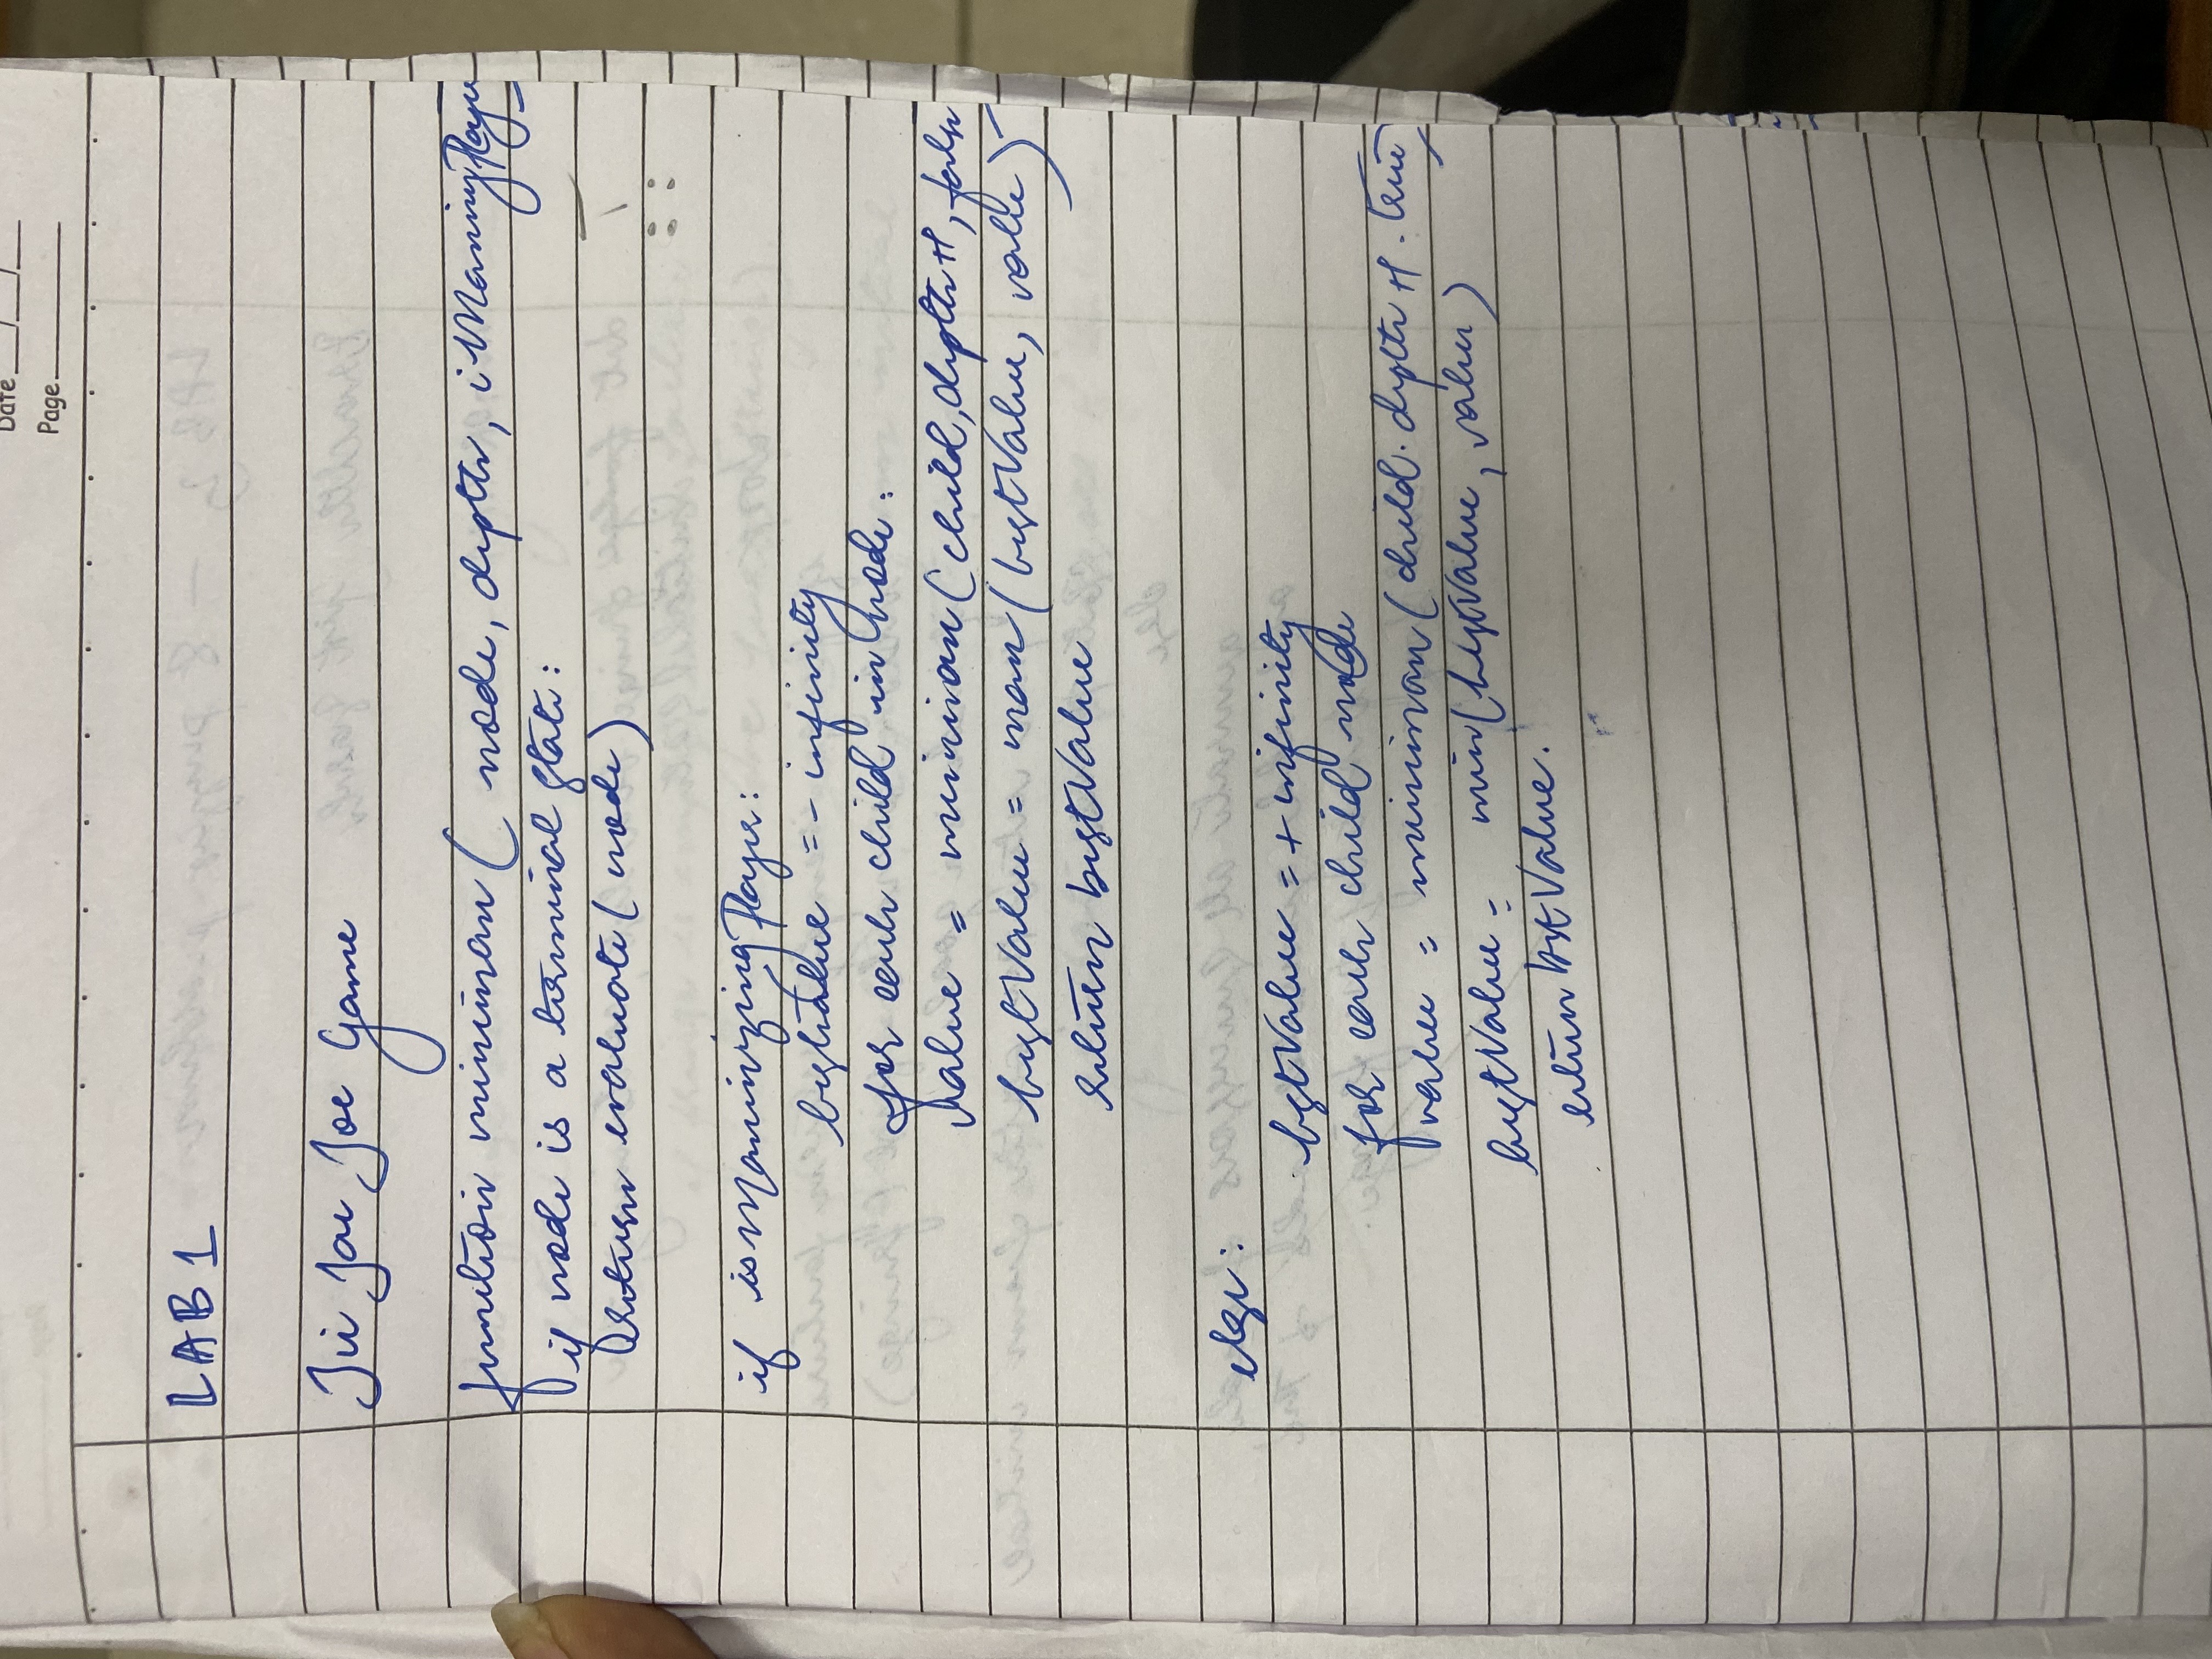 Date __/__/__
Page ______
LAB 1
Tic Tac Toe Game
function minimax ( node, depth, isMaximizingPlayer
if node is a terminal state:
return evaluate ( node )
if isMaximizingPlayer:
bestValue = - infinity
for each child in node:
value = minimax ( child, depth+1, false
bestValue = max ( bestValue, value )
return bestValue
else:
bestValue = + infinity
for each child node
value = minimax ( child. depth +1 . true )
bestValue = min ( bestValue, value )
return bestValue.